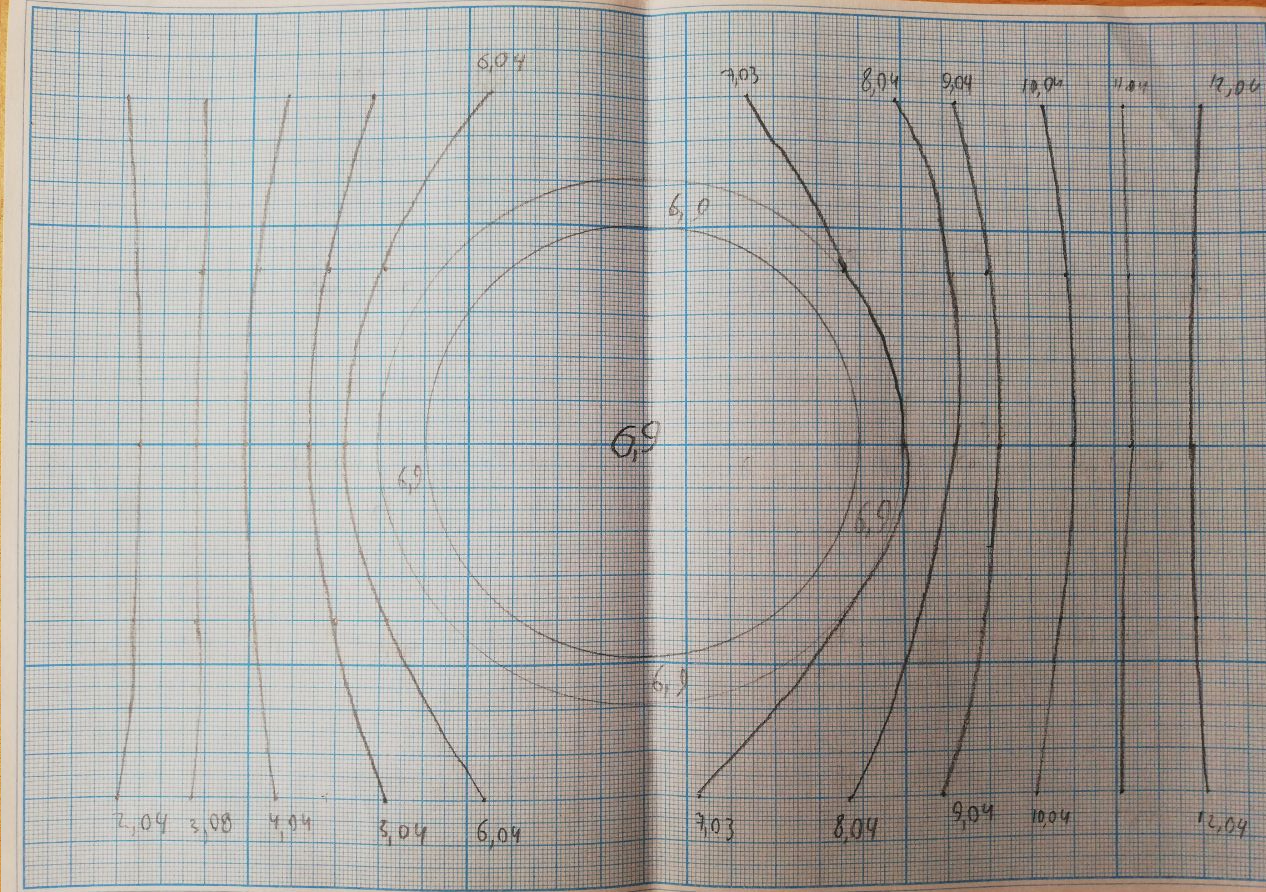 6,04 7,03 8,04 9,04 10,04 11,04 12,04
6,9
6,9
6,9
6,9
6,9
2,04 3,08 4,04 5,04 6,04 7,03 8,04 9,04 10,04 12,04